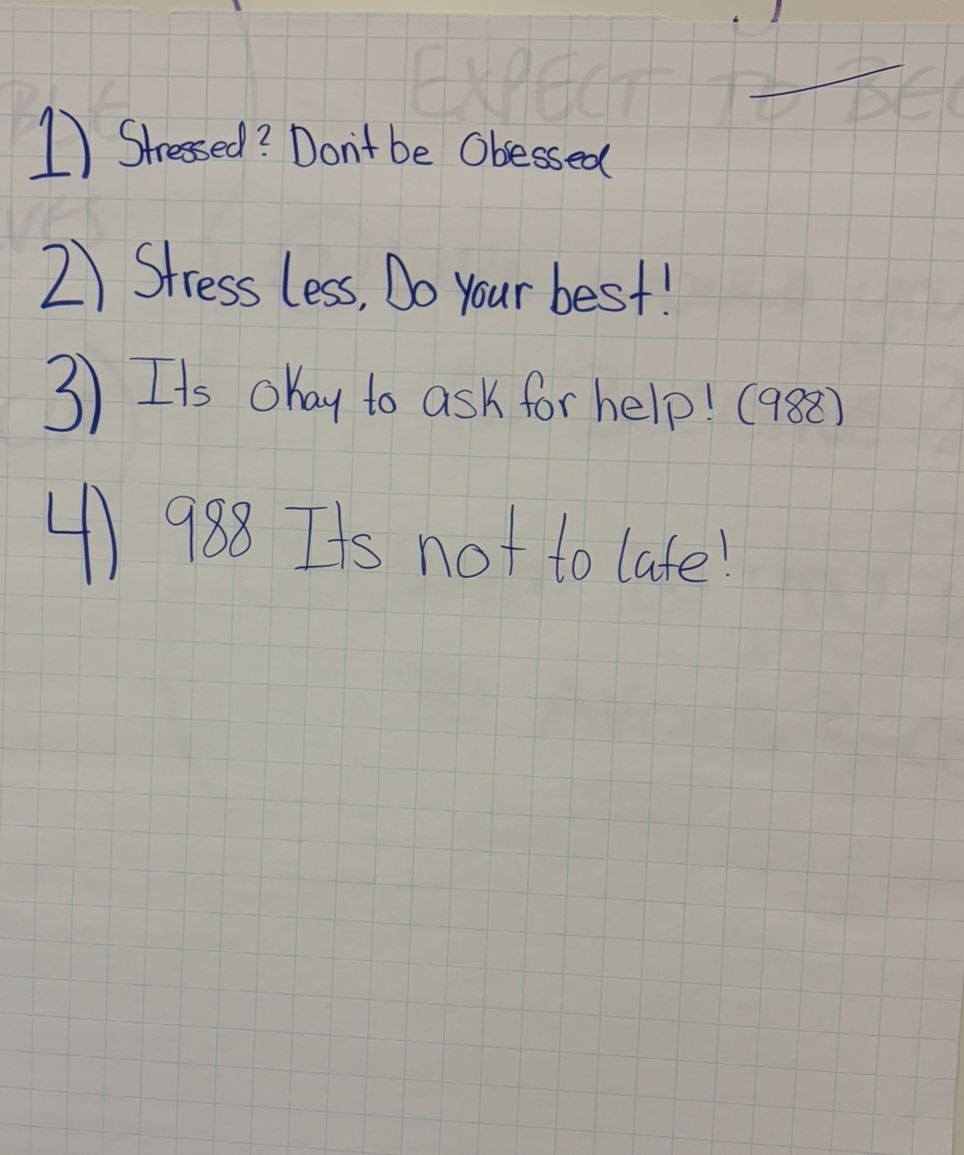 EXPECT TO BEC
1) Stressed? Don't be Obsessed
2) Stress Less, Do Your best!
3) Its okay to ask for help! (988)
4) 988 Its not to late!